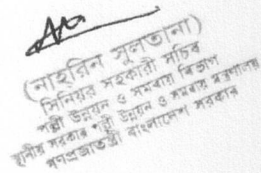 (নাহরিন সুলতানা)
সিনিয়র সহকারী সচিব
পল্লী উন্নয়ন ও সমবায় বিভাগ
স্থানীয় সরকার পল্লী উন্নয়ন ও সমবায় মন্ত্রণালয়
গণপ্রজাতন্ত্রী বাংলাদেশ সরকার